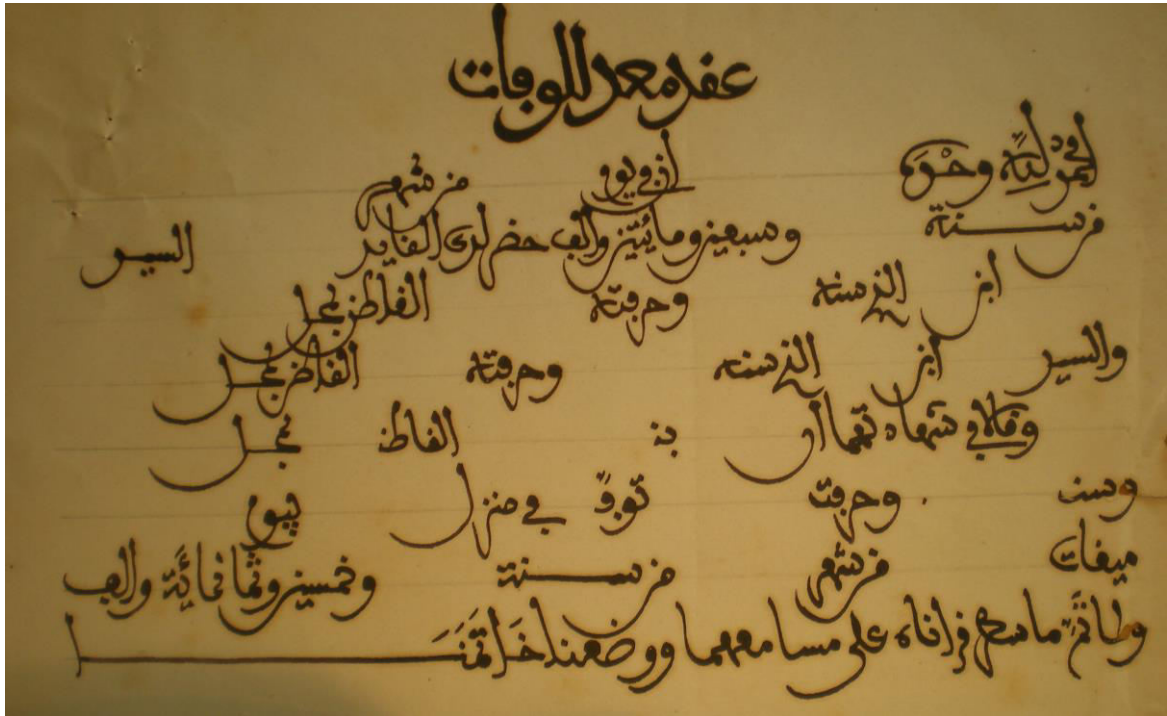 عقد معد للوفات
الحمد لله وحده ان في يوم من شهر
من سنة وسبعين ومائتين والف حضر لدى القايد السيد
ابن الذي سنه وحرفته القاطن بمحل
والسيد ابن الذي سنه وحرفته القاطن بمحل
وقالا في شهادتهما ان بن القاطن بمحل
وسنـ وحرفتـ توفي في منزل بيوم
ميقات من شهر من سنة وخمسين وثمانمائة والف
ولما تم ما سطر قراناه على مسامعهما ووضعنا خاتمنا